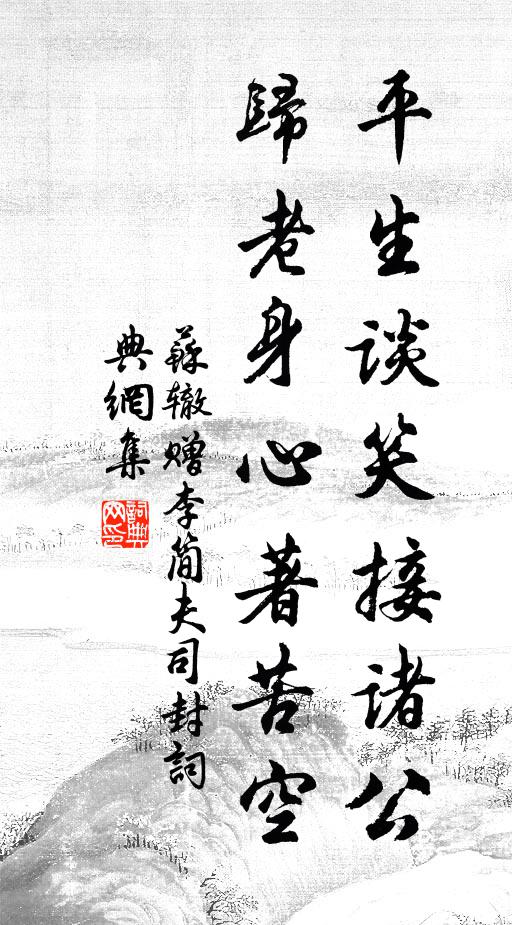 平生谈笑接诸公
歸老身心著苦空
蘇辙赠李简夫司封詞
典網集
詞典
网印